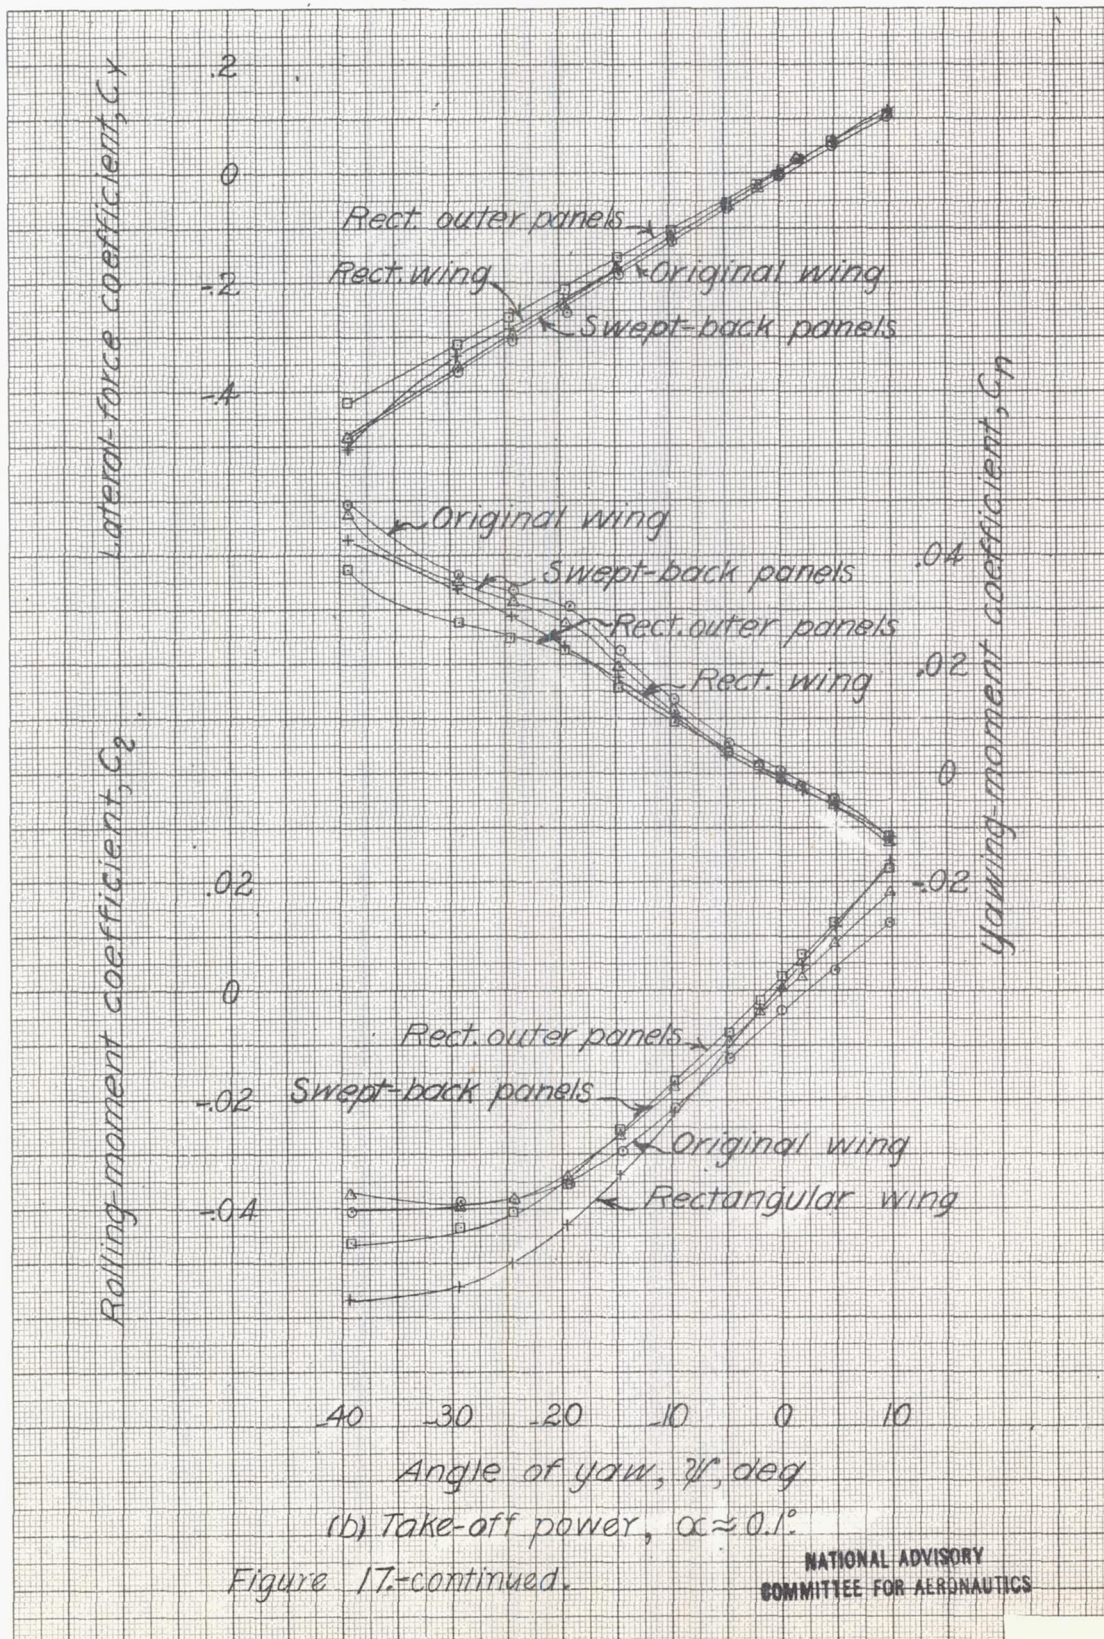 Lateral-force coefficient, Cy
.2
0
-.2
-.4
Rect. outer panels
Rect. wing
Original wing
Swept-back panels
Yawing-moment coefficient, Cn
.04
.02
0
-.02
Original wing
Swept-back panels
Rect. outer panels
Rect. wing
Rolling-moment coefficient, C2
.02
0
-.02
-.04
Rect. outer panels
Swept-back panels
Original wing
Rectangular wing
-40 -30 -20 -10 0 10
Angle of yaw, ψ, deg
(b) Take-off power, α ≈ 0.1°.
Figure 17.-continued.
NATIONAL ADVISORY
COMMITTEE FOR AERONAUTICS